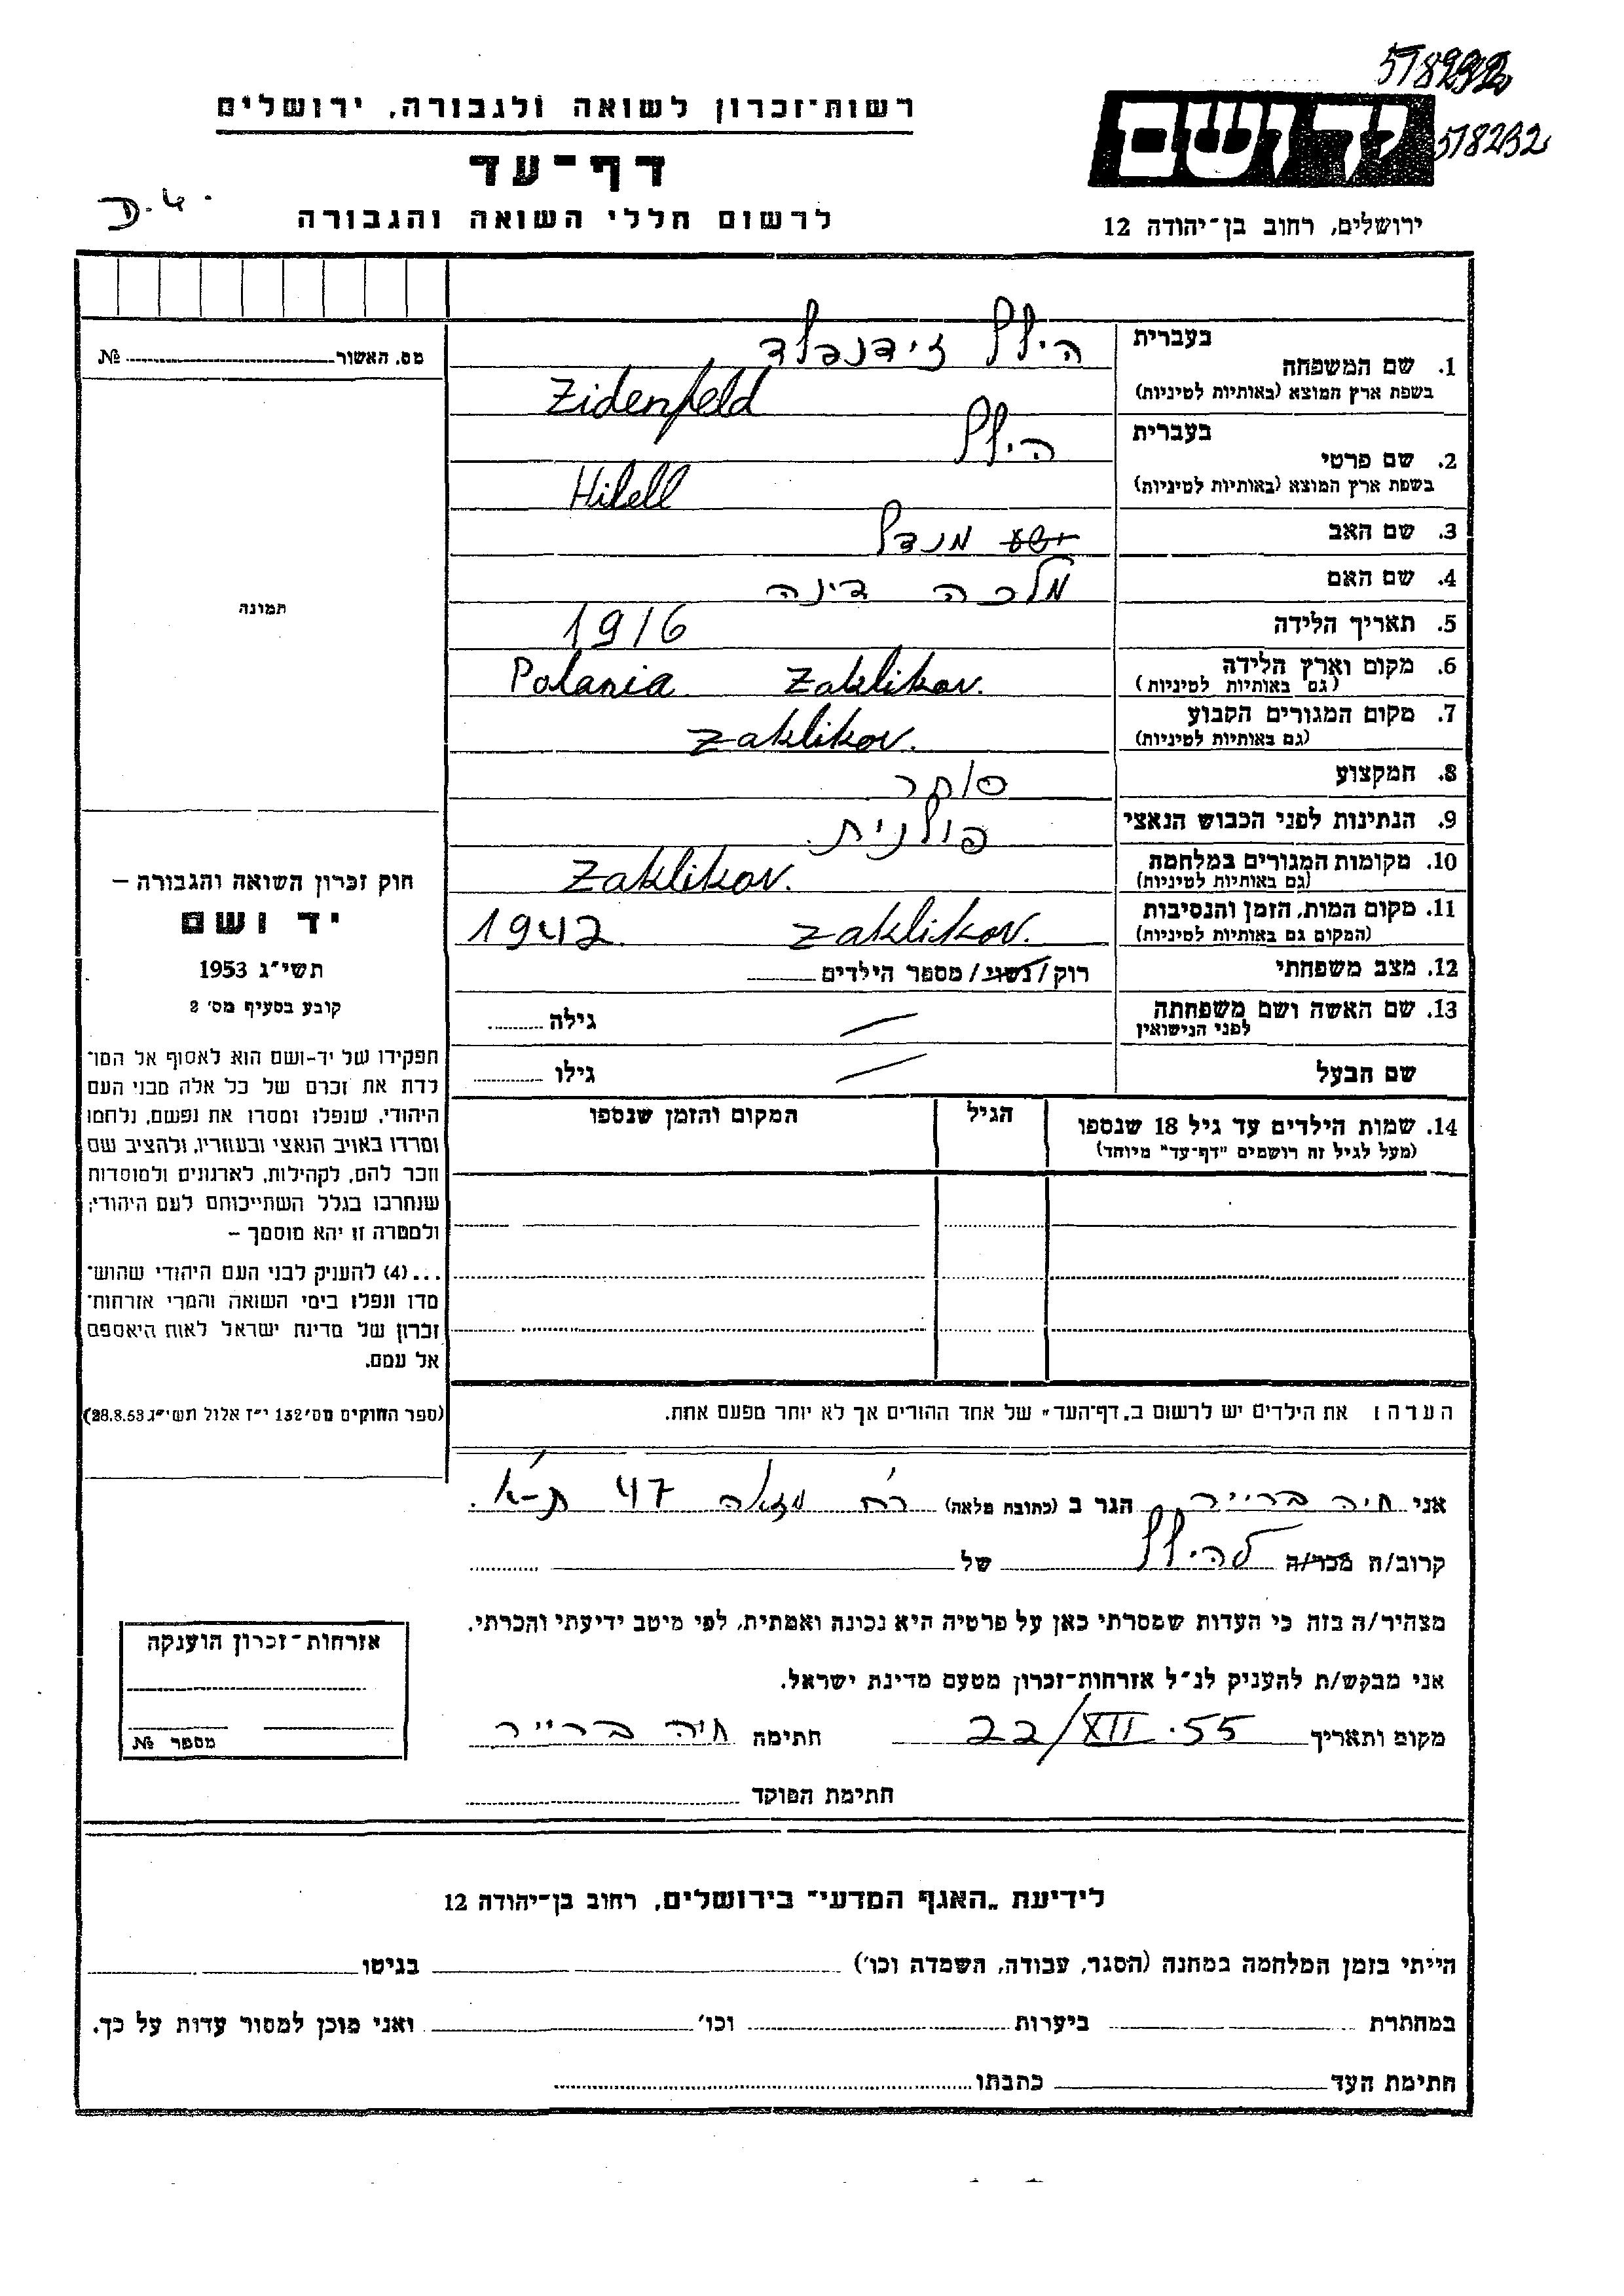 578232
578232
יד ושם
ירושלים, רחוב בן־יהודה 12
רשות־זכרון לשואה ולגבורה, ירושלים
דף־עד
לרשום חללי השואה והגבורה
מס. האשור № 
תמונה
בעברית
1. שם המשפחה הילל זידנפלד
בשפת ארץ המוצא (באותיות לטיניות) Zidenfeld
בעברית
2. שם פרטי הילל
בשפת ארץ המוצא (באותיות לטיניות) Hilell
3. שם האב מנדל
4. שם האם מלכה דינה
5. תאריך הלידה 1916
6. מקום וארץ הלידה Zaklikov. Polania
(גם באותיות לטיניות)
7. מקום המגורים הקבוע Zaklikov.
(גם באותיות לטיניות)
8. המקצוע סוחר
9. הנתינות לפני הכבוש הנאצי פולנית.
10. מקומות המגורים במלחמה Zaklikov.
(גם באותיות לטיניות)
11. מקום המות, הזמן והנסיבות Zaklikov. 1942.
(המקום גם באותיות לטיניות)
12. מצב משפחתי רוק/נשוי/מספר הילדים
13. שם האשה ושם משפחתה גילה
לפני הנישואין
שם הבעל גילו
14. שמות הילדים עד גיל 18 שנספו הגיל המקום והזמן שנספו
(מעל לגיל זה רושמים "דף־עד" מיוחד)
חוק זכרון השואה והגבורה –
יד ושם
תשי"ג 1953
קובע בסעיף מס' 2
תפקידו של יד-ושם הוא לאסוף אל המו־
לדת את זכרם של כל אלה מבני העם
היהודי, שנפלו ומסרו את נפשם, נלחמו
ומרדו באויב הנאצי ובעוזריו, ולהציב שם
וזכר להם, לקהילות, לארגונים ולמוסדות
שנחרבו בגלל השתייכותם לעם היהודי;
ולמטרה זו יהא מוסמך –
...(4) להעניק לבני העם היהודי שהוש־
מדו ונפלו בימי השואה והמרי אזרחות־
זכרון של מדינת ישראל לאות היאספם
אל עמם.
(ספר החוקים מס' 132 י"ז אלול תשי"ג 28.8.53)
הערה: את הילדים יש לרשום ב„דף־העד" של אחד ההורים אך לא יותר מפעם אחת.
אני חיה ברייר הגר ב (כתובת מלאה) רח' מזא"ה 47 ת-א.
קרוב/ה מכר/ה להילל של
מצהיר/ה בזה כי העדות שמסרתי כאן על פרטיה היא נכונה ואמתית, לפי מיטב ידיעתי והכרתי.
אני מבקש/ת להעניק לנ"ל אזרחות־זכרון מטעם מדינת ישראל.
מקום ותאריך 22/XII.55 חתימה חיה ברייר
חתימת הפוקד
אזרחות־זכרון הוענקה
מספר №
לידיעת „האגף המדעי" בירושלים, רחוב בן־יהודה 12
הייתי בזמן המלחמה במחנה (הסגר, עבודה, השמדה וכו') בגיטו
במחתרת ביערות וכו' ואני מוכן למסור עדות על כך.
חתימת העד כתבתו